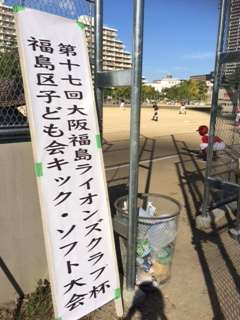 第十七回大阪福島ライオンズクラブ杯
福島区子ども会キック・ソフト大会